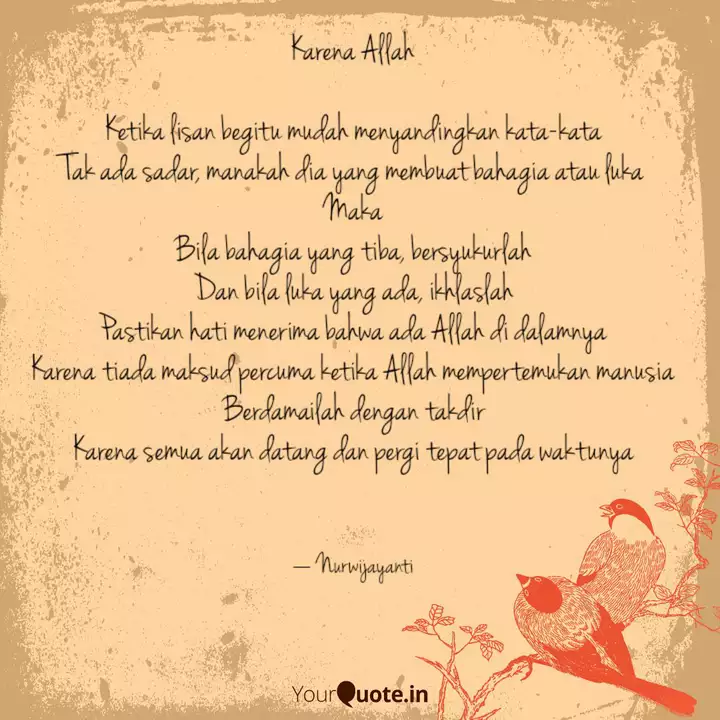 Karena Allah
Ketika lisan begitu mudah menyandingkan kata-kata
Tak ada sadar, manakah dia yang membuat bahagia atau luka
Maka
Bila bahagia yang tiba, bersyukurlah
Dan bila luka yang ada, ikhlaslah
Pastikan hati menerima bahwa ada Allah di dalamnya
Karena tiada maksud percuma ketika Allah mempertemukan manusia
Berdamailah dengan takdir
Karena semua akan datang dan pergi tepat pada waktunya
— Nurwijayanti
YourQuote.in